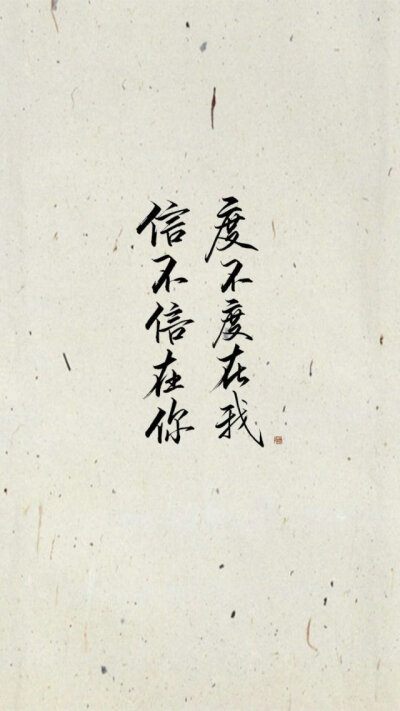 信不信在你
度不度在我